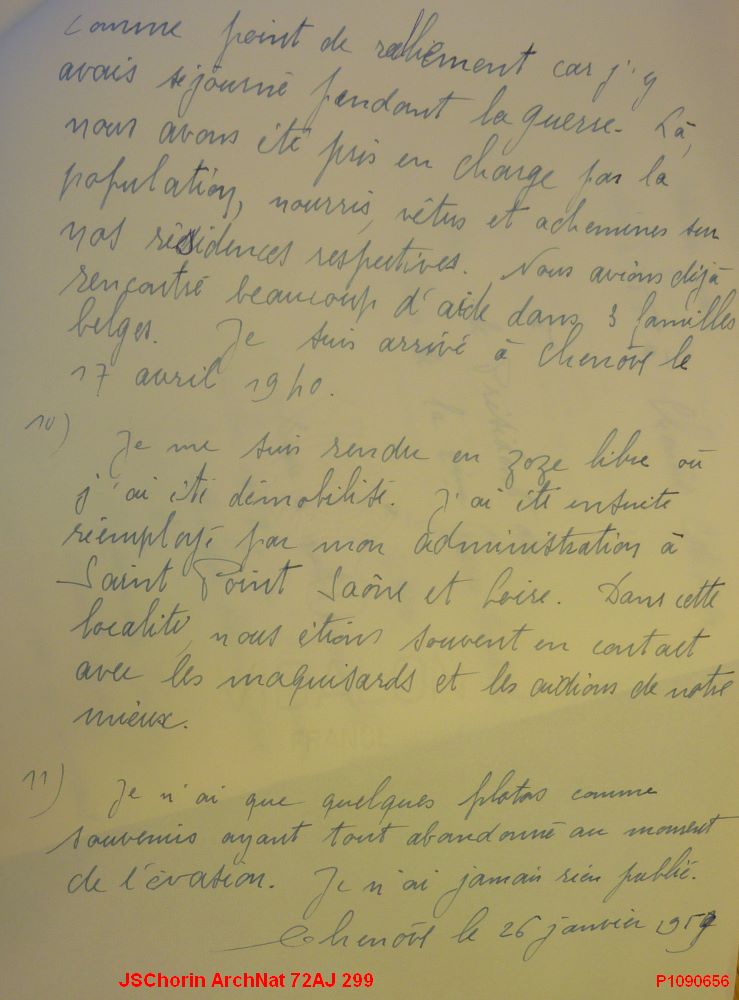 comme point de ralliement car j'y
avais séjourné pendant la guerre. Là,
nous avons été pris en charge par la
population, nourris, vêtus et acheminés sur
nos résidences respectives. Nous avions déjà
rencontré beaucoup d'aide dans 3 familles
belges. Je suis arrivé à Chenôve le
17 avril 1940.
10) Je me suis rendu en zoze libre où
j'ai été démobilisé. J'ai été ensuite
réemployé par mon administration à
Saint Point Saône et Loire. Dans cette
localité, nous étions souvent en contact
avec les maquisards et les aidions de notre
mieux.
FRANCE
11) Je n'ai que quelques photos comme
souvenirs ayant tout abandonné au moment
de l'évasion. Je n'ai jamais rien publié.
Chenôve le 26 janvier 1957
JSChorin ArchNat 72AJ 299
P1090656